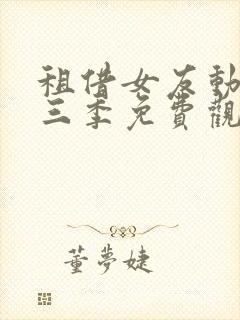 租借女友動
三季免費觀
董夢婕